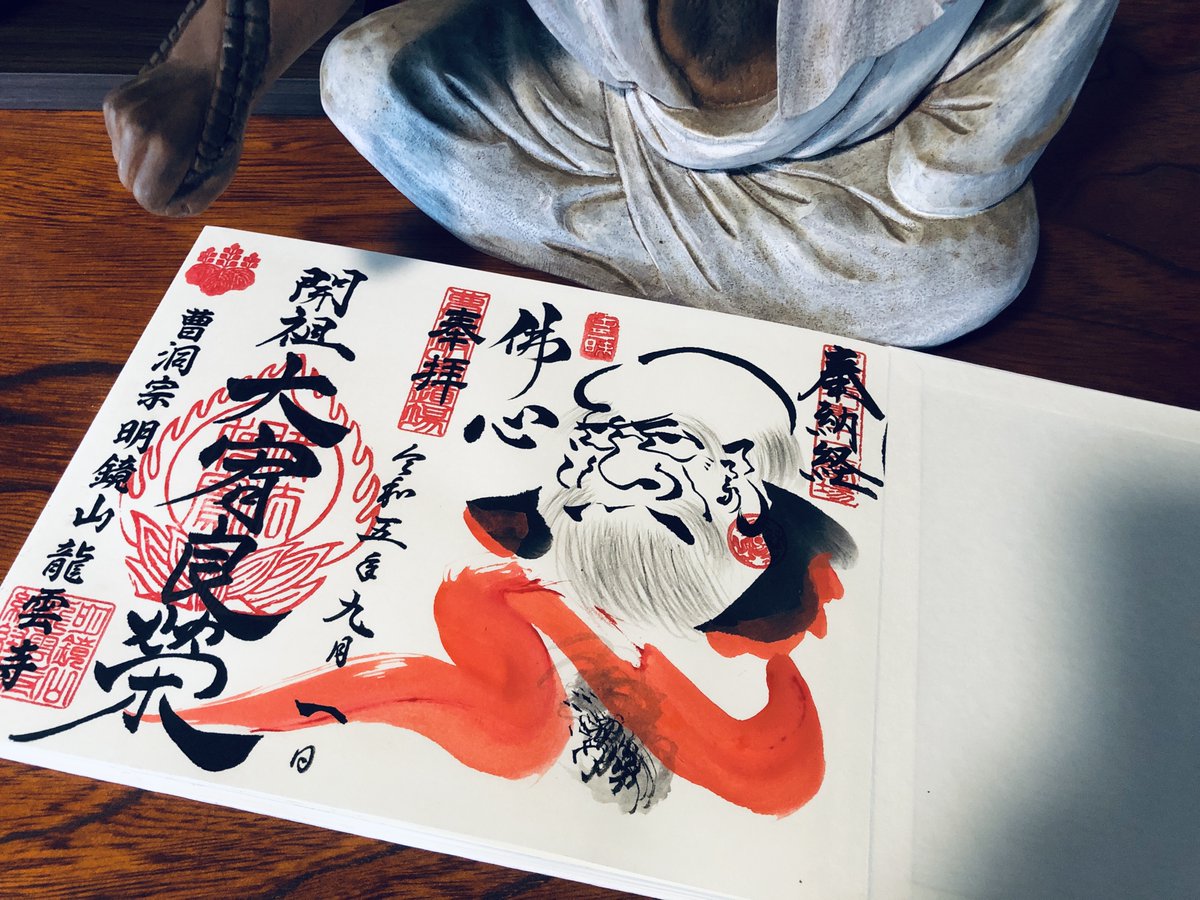 奉納経
佛心
奉拝
令和五年九月一日
開祖大宥良栄
曹洞宗明鏡山龍雲寺